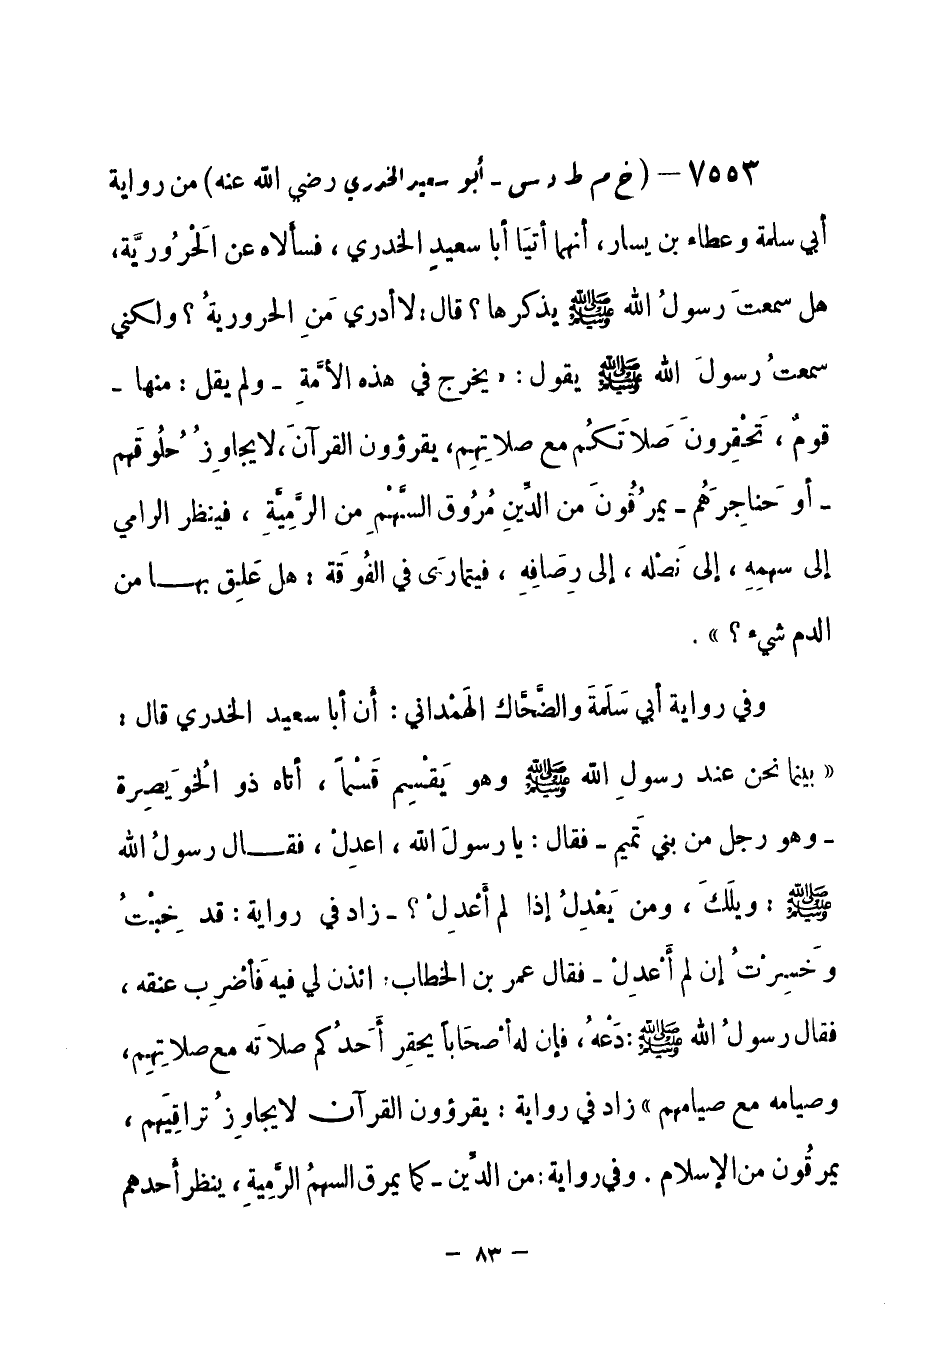 ٧٥٥٣ – (خ م ط د س – أبو سعيد الخدري رضي الله عنه) من رواية
أبي سلمة وعطاء بن يسار، أنهما أتيَا أبا سعيدٍ الخدري، فسألاه عن الحَرُوريَّة،
هل سمعتَ رسولَ الله ﷺ يذكرها؟ قال: لا أدري مَنِ الحرورية؟ ولكني
سمعتُ رسولَ الله ﷺ يقول: «يخرج في هذه الأمَّةِ – ولم يقل: منها –
قومٌ، تَحْقِرونَ صَلاتَكُم مع صلاتِهِم، يقرؤون القرآنَ، لا يجاوِزُ حُلُوقَهم
– أو حَناجِرَهُم – يمرُقُونَ من الدِّينِ مُرُوقَ السَّهْمِ من الرَّمِيَّةِ، فينظر الرامي
إلى سهمِهِ، إلى نَصْله، إلى رِصَافِهِ، فيتمارَى في الفُوقَة: هل عَلِق بهـا من
الدم شيء؟».
وفي رواية أبي سَلَمَةَ والضَّحَّاك الهَمْداني: أن أبا سعيد الخدري قال:
«بينما نحن عند رسولِ الله ﷺ وهو يَقْسِم قَسْماً، أتاه ذو الخُوَيصِرة
– وهو رجل من بني تَميم – فقال: يا رسولَ الله، اعدِلْ، فقـال رسولُ الله
ﷺ: ويلَكَ، ومن يَعْدِلُ إذا لم أَعْدِلْ؟ – زاد في رواية: قد خِبْتُ
وخَسِرْتُ إن لم أَعْدِلْ – فقال عمر بن الخطاب: ائذن لي فيه فَأضْرِب عنقه،
فقال رسولُ الله ﷺ: دَعْهُ، فإن له أصْحَاباً يحقِر أَحَدُكم صلاتَه مع صلاتِهِم،
وصيامه مع صيامهم» زاد في رواية: يقرؤون القرآن لا يجاوِزُ تراقِيَهم،
يمرقُون من الإسلام. وفي رواية: من الدِّين – كما يمرق السهمُ الرَّمِيةِ، ينظر أحدهم
– ٨٣ –